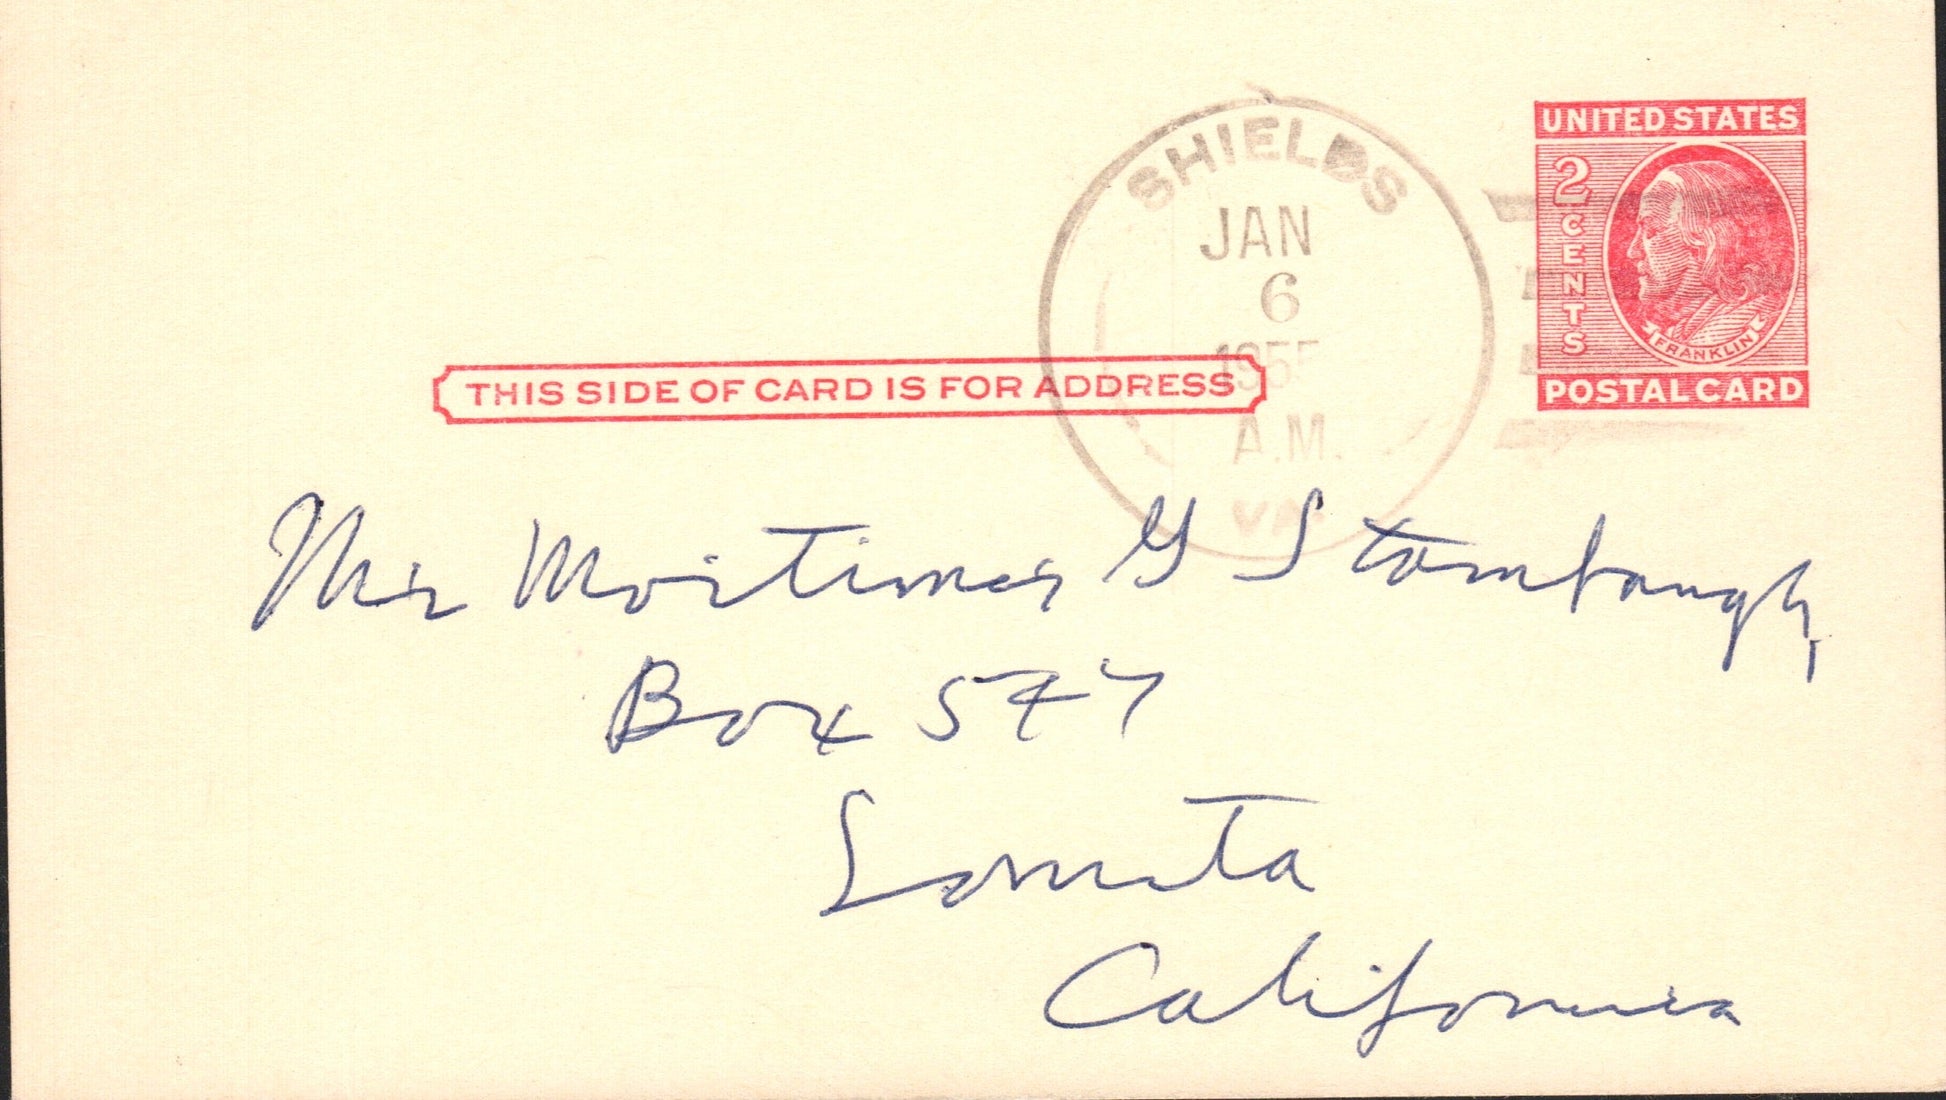 UNITED STATES
2 CENTS
FRANKLIN
POSTAL CARD
SHIELDS
JAN
6
1955
A.M.
VA
THIS SIDE OF CARD IS FOR ADDRESS
Mr Mortimer G Stambaugh,
Box 547
Lomita
California